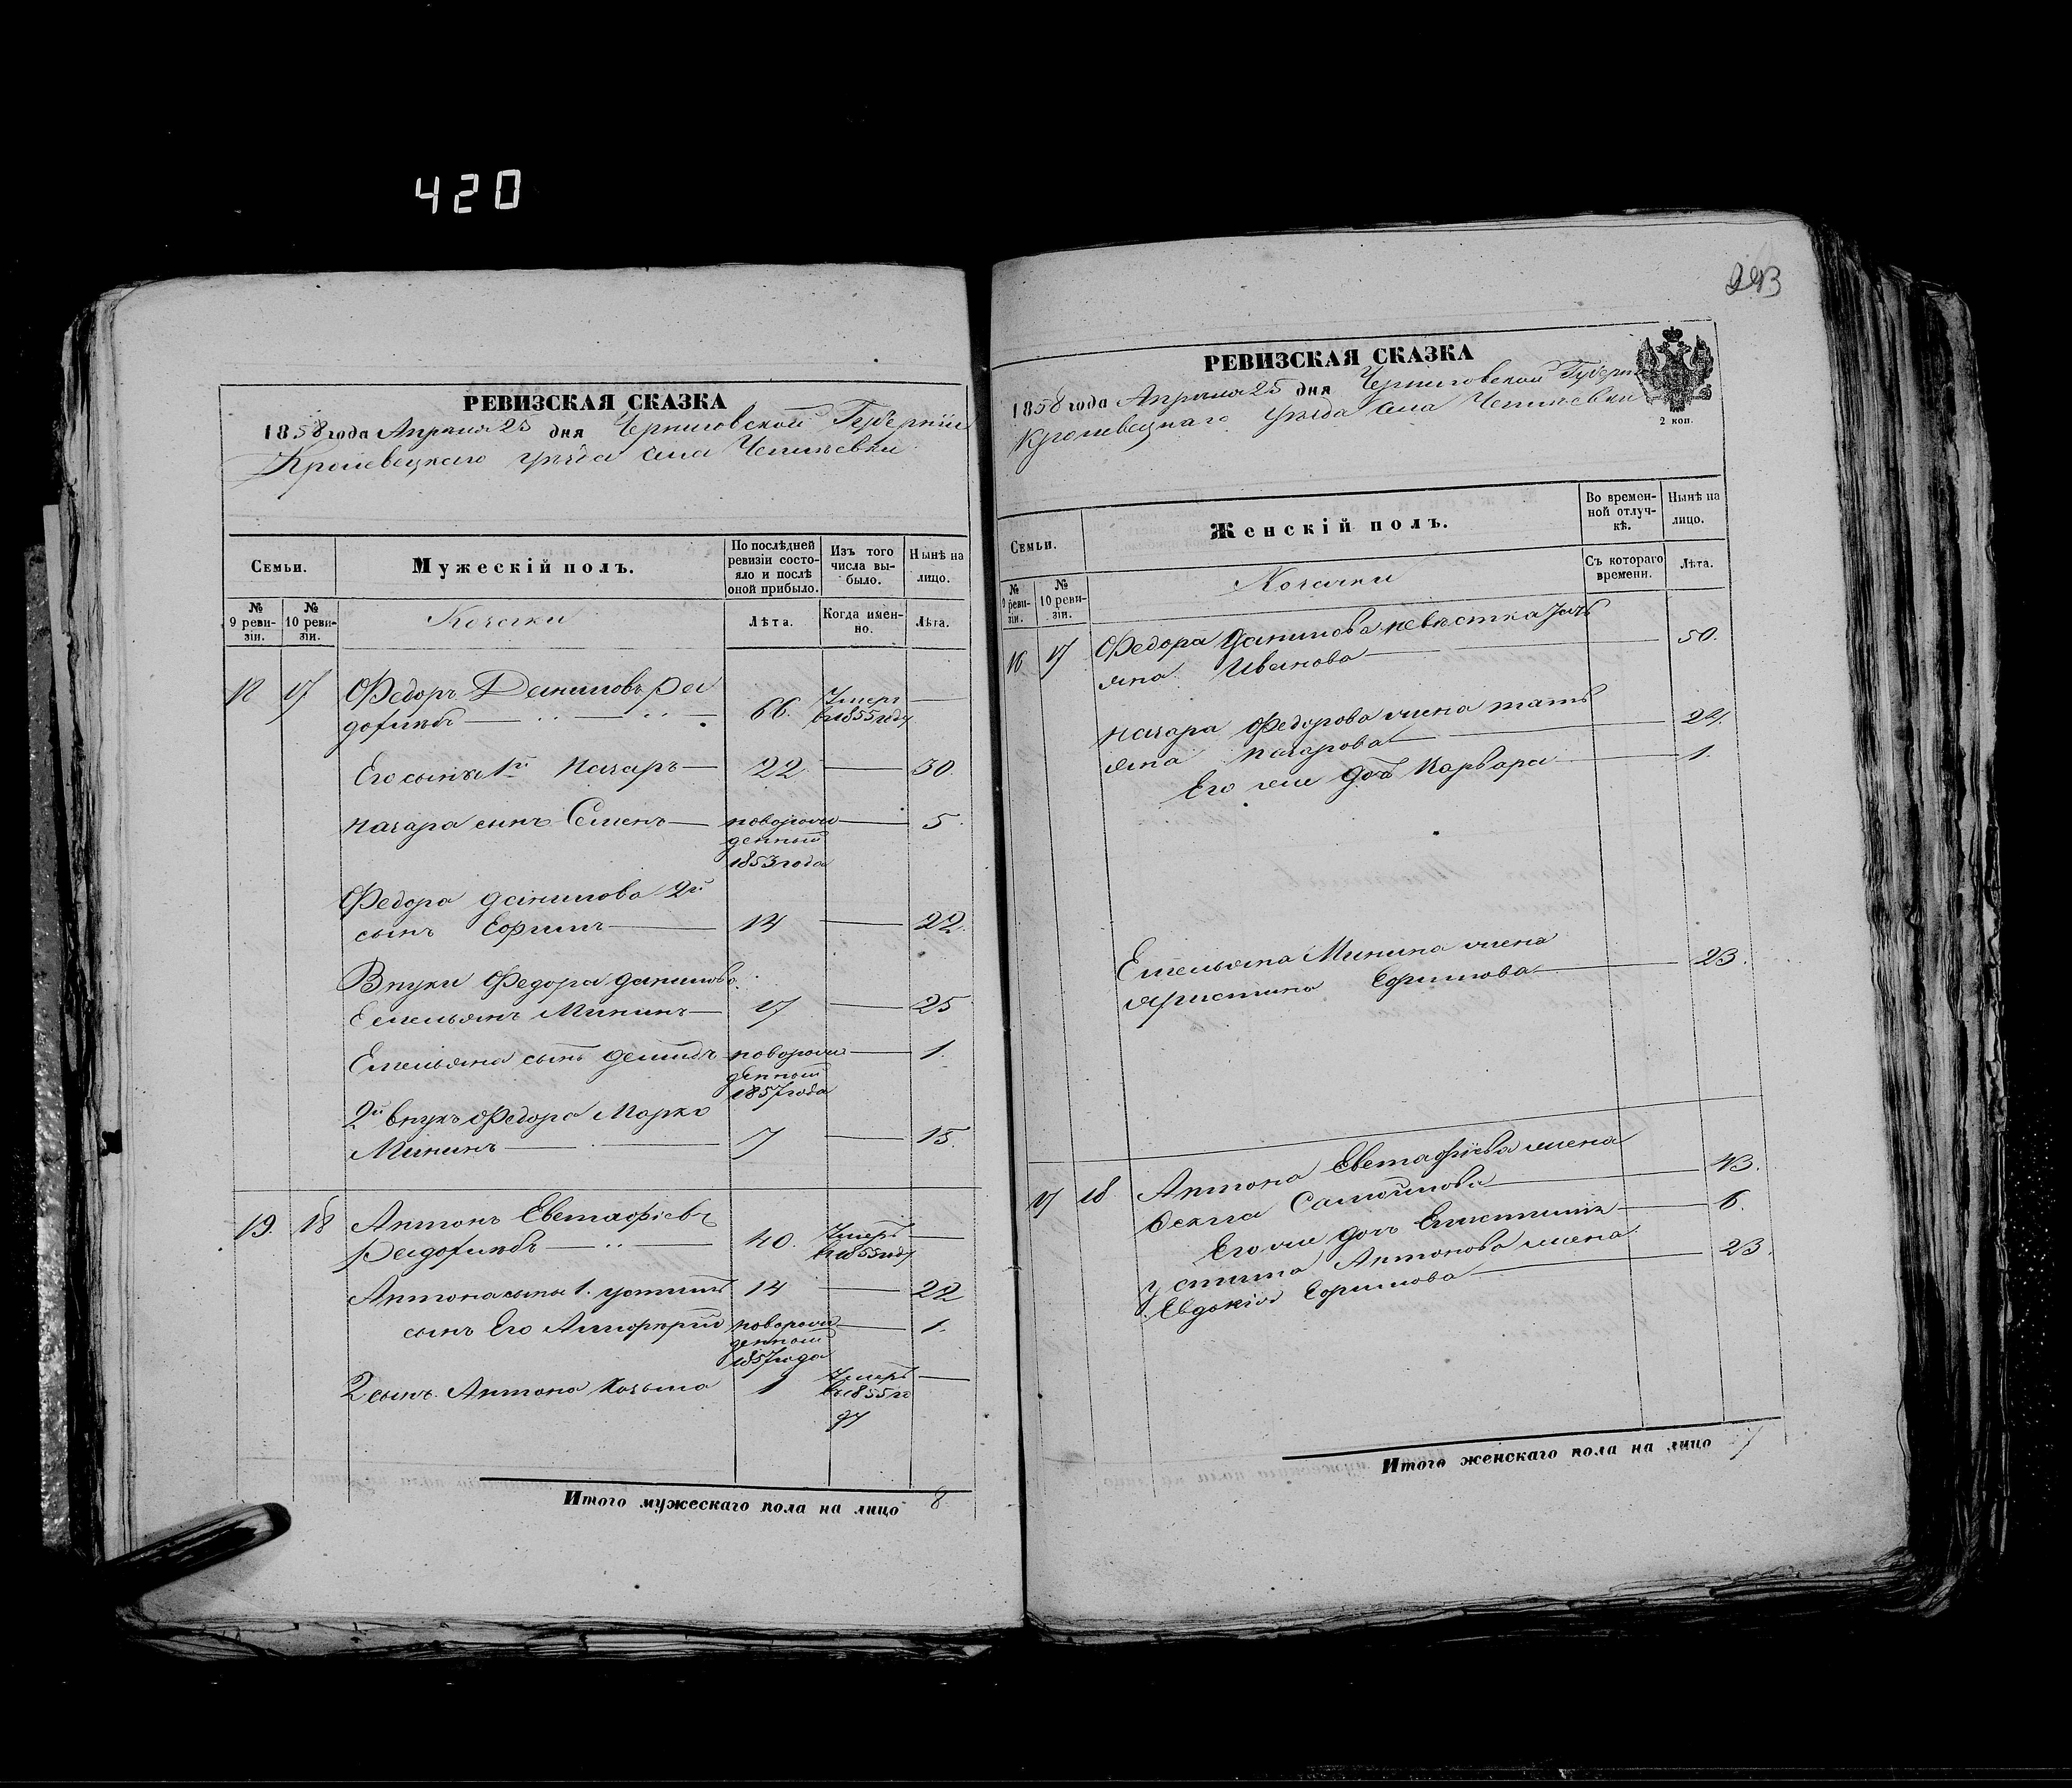 420
РЕВИЗСКАЯ СКАЗКА
1858 года Апреля 25 дня Черниговской Губерніи
Кролевецкаго уѣзда села Чепліевки
Семьи.
Мужескій полъ.
По послѣдней ревизіи состояло и послѣ оной прибыло.
Изъ того числа выбыло.
Нынѣ на лицо.
№ 9 ревизіи.
№ 10 ревизіи.
Козаки
Лѣта.
Когда именно.
Лѣта.
17 Федоръ Даниловъ
66. Умеръ в 1855 году
Его сынъ 1й Назаръ 22 30.
Назара сынъ Семенъ новорожденный 1853 года 5.
Федора Данилова 2й
сынъ Ефимъ 14 22.
Внуки Федора Данилова
Емельянъ Мининъ 17 25
Емельяна сынъ Демидъ новорожденный 1857 года 1.
2й внукъ Федора Марко
Мининъ 7 15.
19. 18 Антонъ Евстафіевъ
40. Умеръ в 1855 году
Антона сыны 1. Устимъ 14 22
сынъ Его новорожденный 1857 года 1.
2 сынъ Антона Козьма 1 Умеръ в 1855 году
Итого мужескаго пола на лицо 8
293
РЕВИЗСКАЯ СКАЗКА
1858 года Апреля 25 дня Черниговской Губерніи
Кролевецкаго уѣзда села Чепліевки
2 коп.
Семьи.
Женскій полъ.
Во временной отлучкѣ.
Нынѣ на лицо.
№ 9 ревизіи.
№ 10 ревизіи.
Козачки
Съ котораго времени.
Лѣта.
16 17 Федора Данилова невѣстка
Иванова 50.
Назара Федорова жена
Назарова 24.
Его же дочь Варвара 1.
Емельяна Минина жена
Ефимова 23.
17 18 Антона Евстафіева жена
Самойлова 43.
Его же дочь 6.
Устима Антонова жена
Евдокія Ефимова 23.
Итого женскаго пола на лицо 7